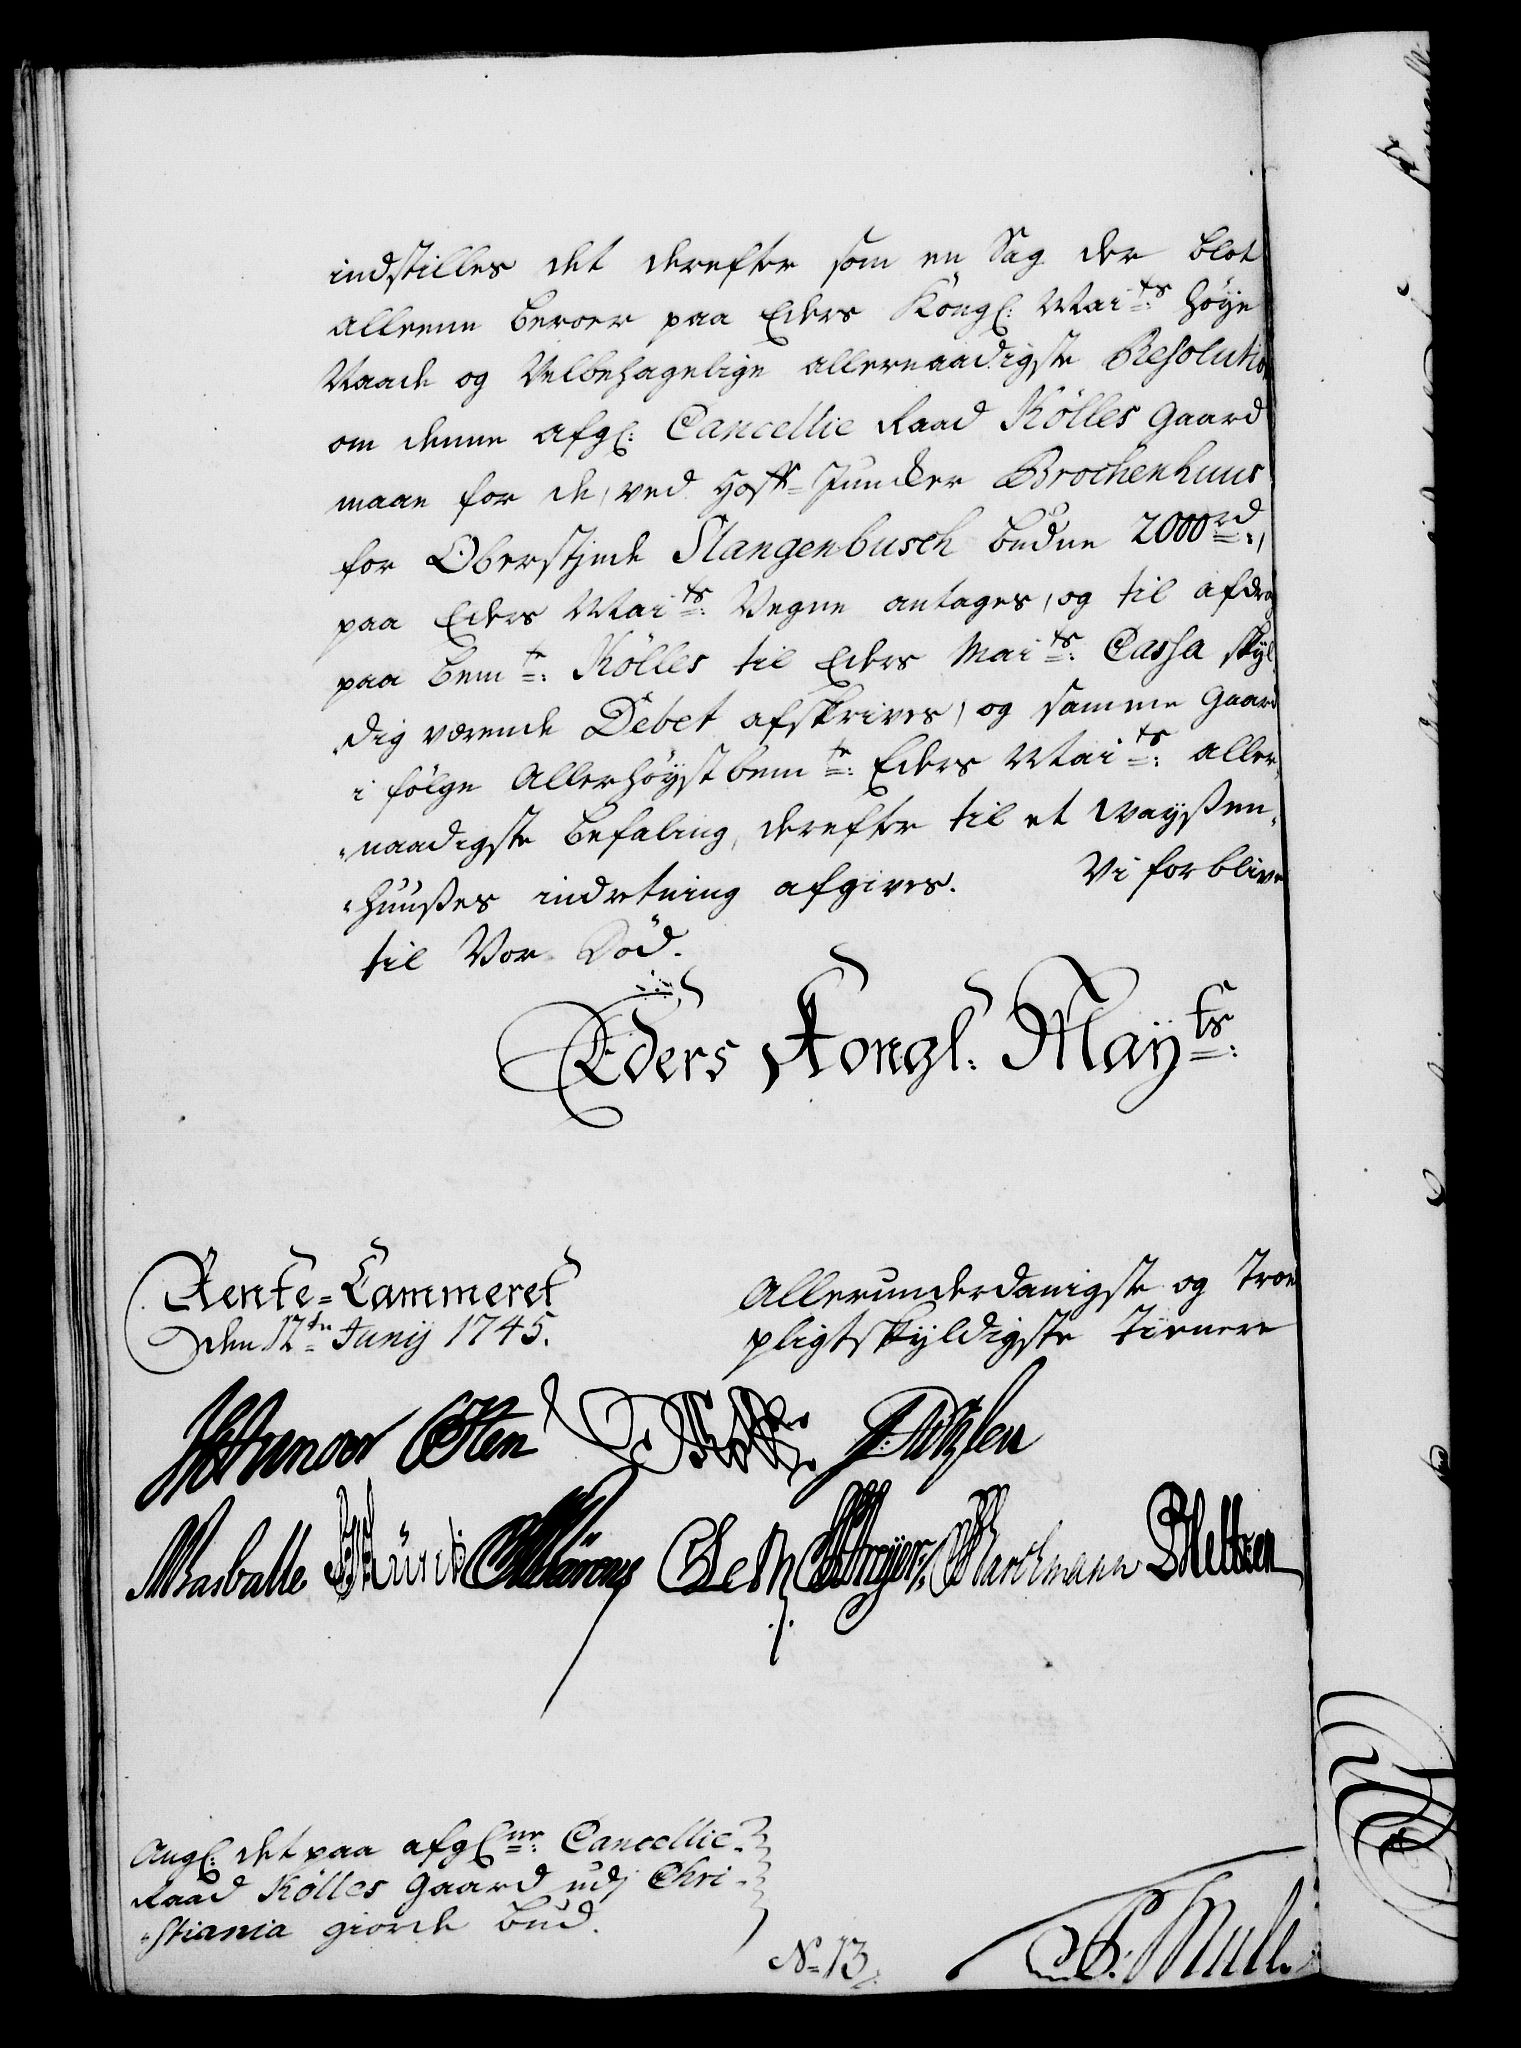 indstilles det derefter som en Sag der blot
alleene beroer paa Eders Köngl: Maits: høye
Naade og Velbehagelige allernaadigste Resolution
om denne afgl: Cancellie Raad Kölles Gaard
maae for de, ved Hoff-Juncker Brochenhuus
for Oberstinde Stangenbusch budne 2000 rd:,
paa Eders Maits: Vegne antages, og til afdrag
paa bemte: Kölles til Eders Maits: Cassa skyl
dig værende Debet afskrives, og samme Gaard
i følge Allerhøystbemte: Eders Maits: aller
naadigste befaling, derefter til et Wayßen-
huußes indretning afgives. Vi forblive
til Vor Död.
Eders Kongl. Mayts:
Rente-Cammeret
den 12te Junij 1745.
Allerunderdanigste og Troe
pligtskyldigste Tienere
Angl: det paa afglne: Cancellie-
Raad Kölles Gaard udj Chri-
stiania giorde bud.
No 13